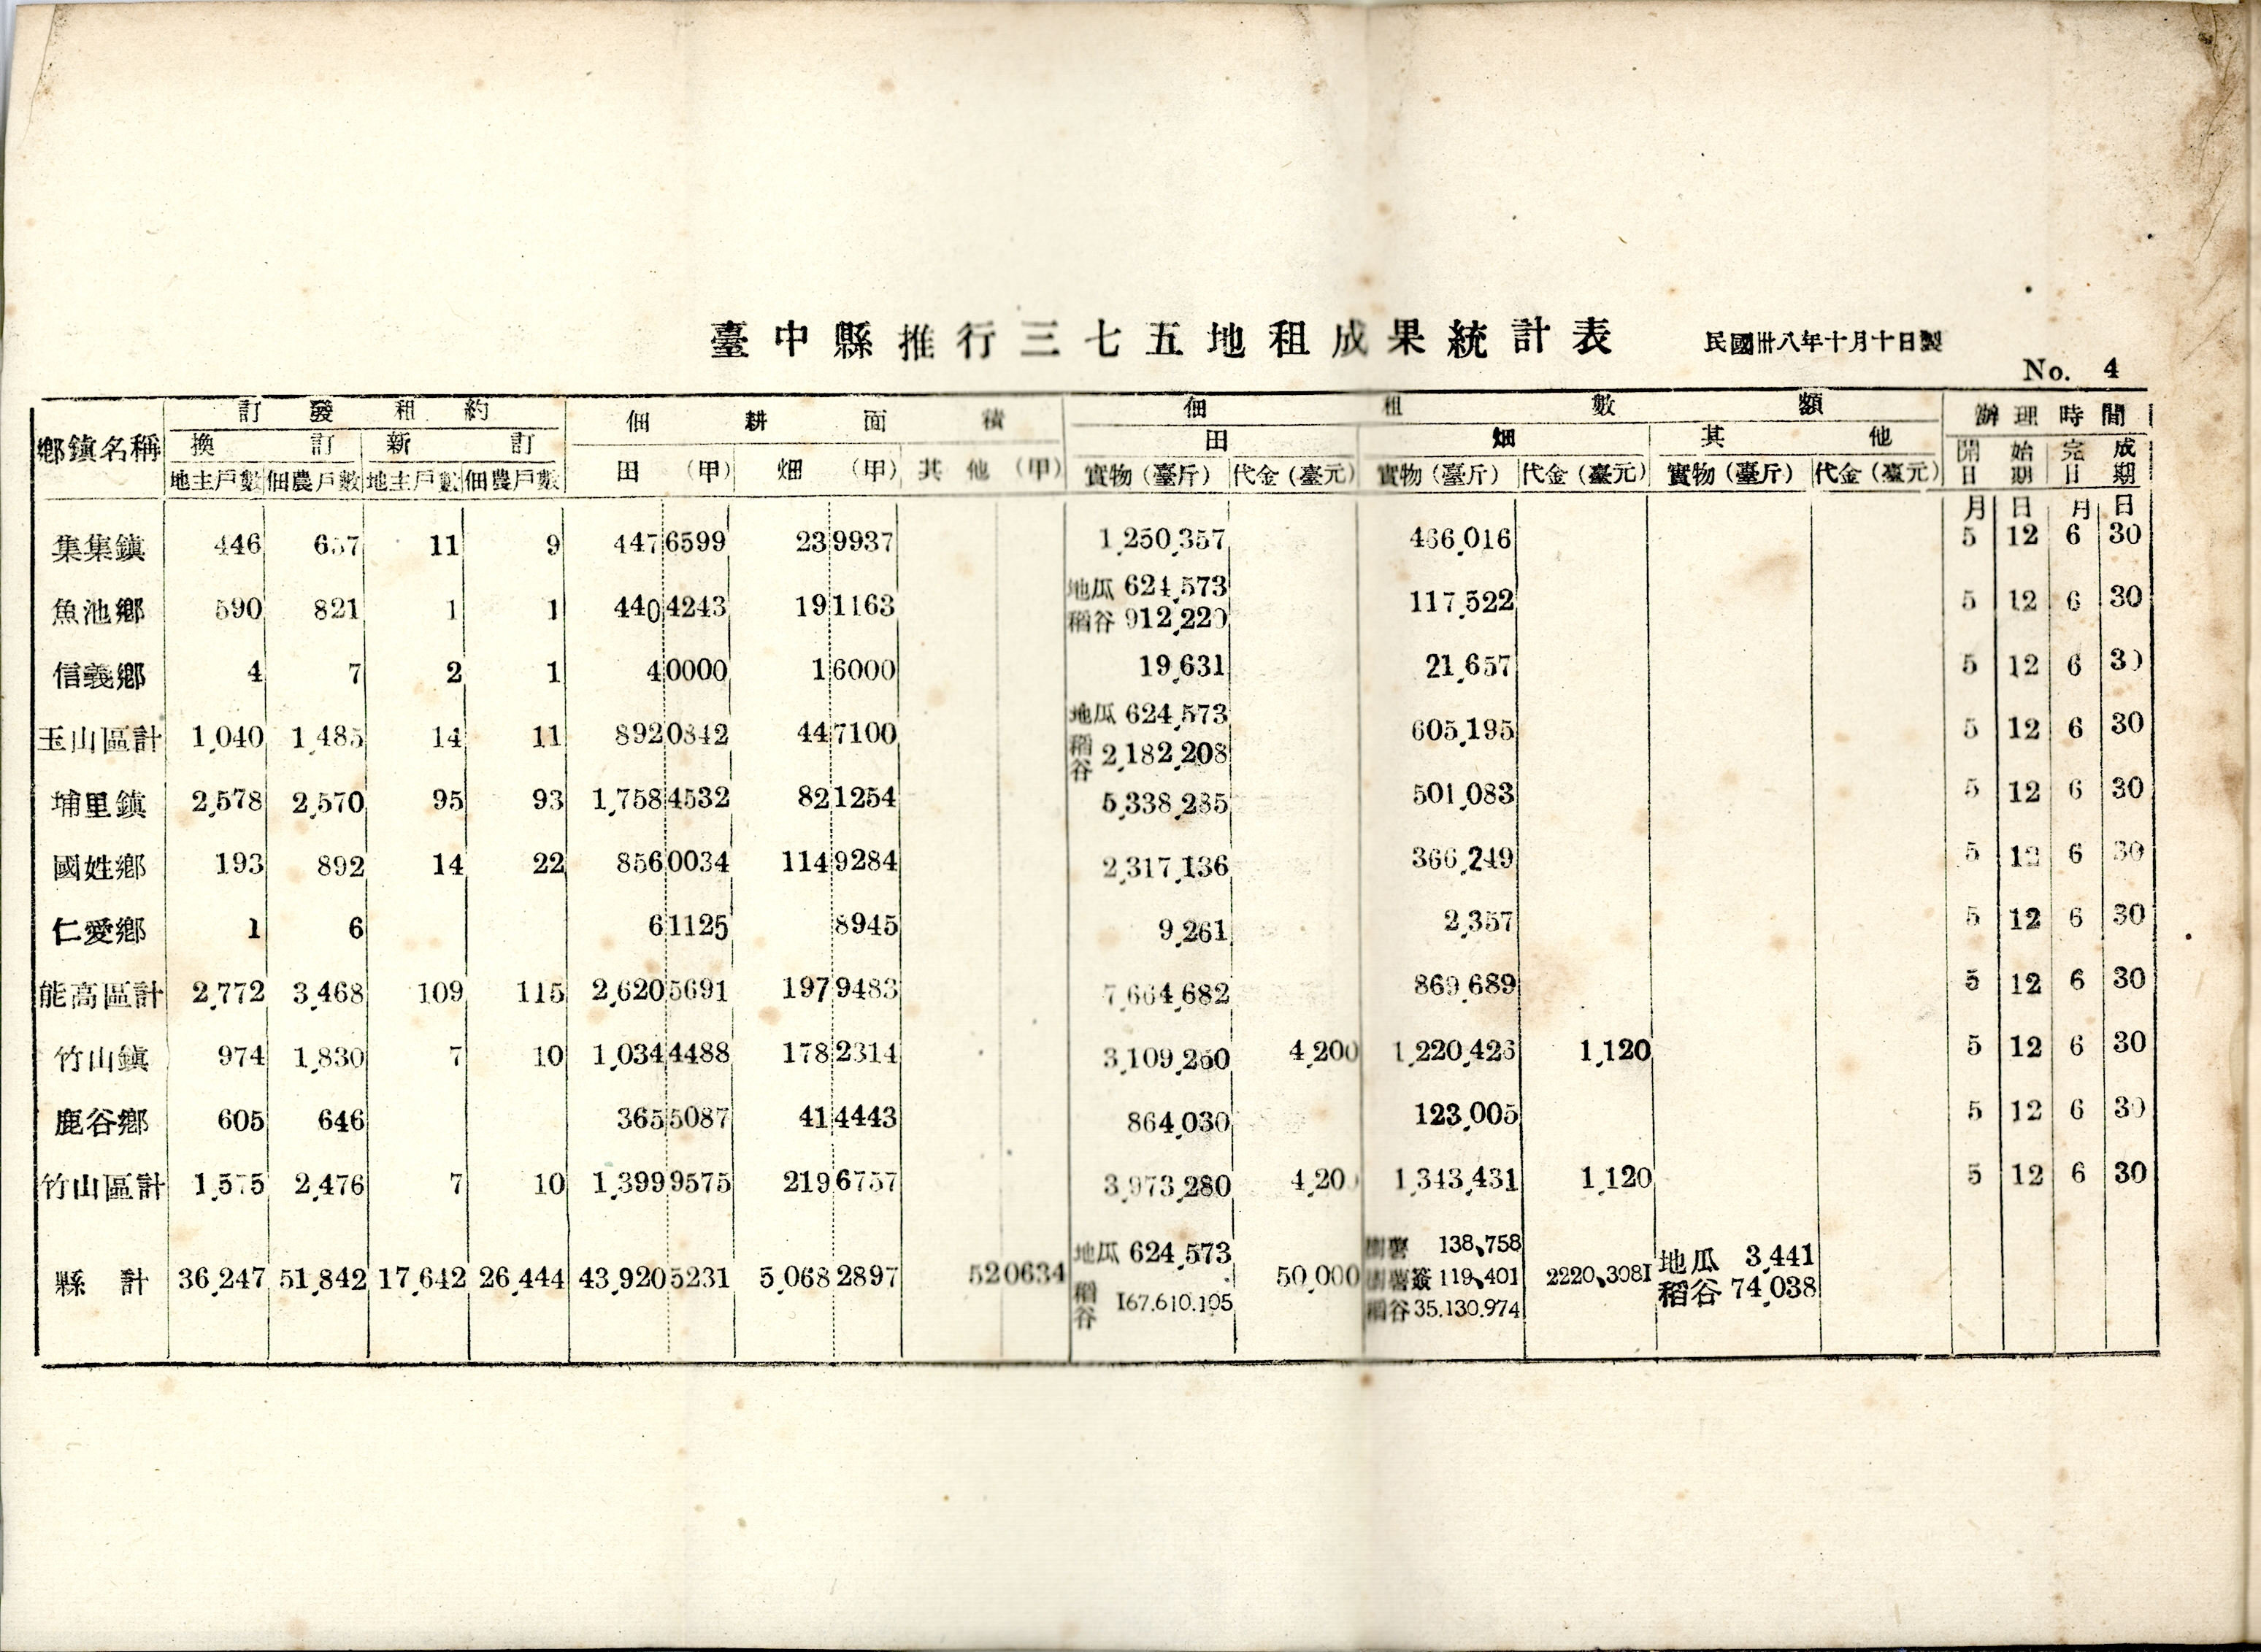 臺中縣推行三七五地租成果統計表 民國卅八年十月十日製
No. 4
鄉鎮名稱 訂發租約 佃耕面積 佃租數額 辦理時間
換訂 新訂 田(甲) 畑(甲) 其他(甲) 田 畑 其他 開始日期 完成日期
地主戶數 佃農戶數 地主戶數 佃農戶數 實物(臺斤) 代金(臺元) 實物(臺斤) 代金(臺元) 實物(臺斤) 代金(臺元)
月 日 月 日
集集鎮 446 657 11 9 447 6599 23 9937 1,250,357 466,016 5 12 6 30
魚池鄉 590 821 1 1 440 4243 19 1163 地瓜 624,573 稻谷 912,220 117,522 5 12 6 30
信義鄉 4 7 2 1 4 0000 1 6000 19,631 21,657 5 12 6 30
玉山區計 1,040 1,485 14 11 892 0842 44 7100 地瓜 624,573 稻谷 2,182,208 605,195 5 12 6 30
埔里鎮 2,578 2,570 95 93 1,758 4532 82 1254 5,338,285 501,083 5 12 6 30
國姓鄉 193 892 14 22 856 0034 114 9284 2,317,136 366,249 5 12 6 30
仁愛鄉 1 6 6 1125 8945 9,261 2,357 5 12 6 30
能高區計 2,772 3,468 109 115 2,620 5691 197 9483 7,664,682 869,689 5 12 6 30
竹山鎮 974 1,830 7 10 1,034 4488 178 2314 3,109,250 4,200 1,220,426 1,120 5 12 6 30
鹿谷鄉 605 646 365 5087 41 4443 864,030 123,005 5 12 6 30
竹山區計 1,575 2,476 7 10 1,399 9575 219 6757 3,973,280 4,200 1,343,431 1,120 5 12 6 30
縣計 36,247 51,842 17,642 26,444 43,920 5231 5,068 2897 52 0634 地瓜 624,573 稻谷 167.610.105 50,000 樹薯 138,758 樹薯簽 119,401 稻谷 35.130.974 2220,3081 地瓜 3,441 稻谷 74,038